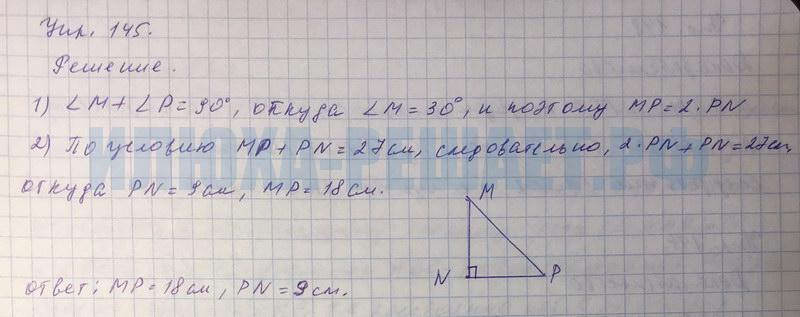 Упр. 145.
Решение.
1) ∠M + ∠P = 90°, откуда ∠M = 30°, и поэтому MP = 2 · PN
2) По условию MP + PN = 27 см, следовательно, 2 · PN + PN = 27 см,
откуда PN = 9 см, MP = 18 см.
M
N
P
ответ: MP = 18 см, PN = 9 см.
ИГЮХА-РЕШАЕТ.РФ